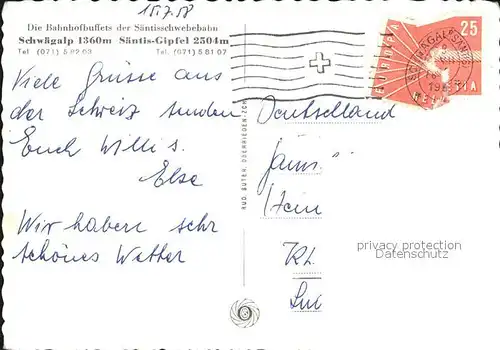 15.7.58
Die Bahnhofbuffets der Säntisschwebebahn
Schwägalp 1360m Säntis-Gipfel 2504m
Tel. (071) 5 82 03 Tel. (071) 5 81 07
25
HELVETIA
Viele Grüsse aus
der Schweiz senden
Euch Willi u.
Else
Wir haben sehr
schönes Wetter
RUD. SUTER, OBERRIEDEN-ZCH
Deutschland
privacy protection
Datenschutz